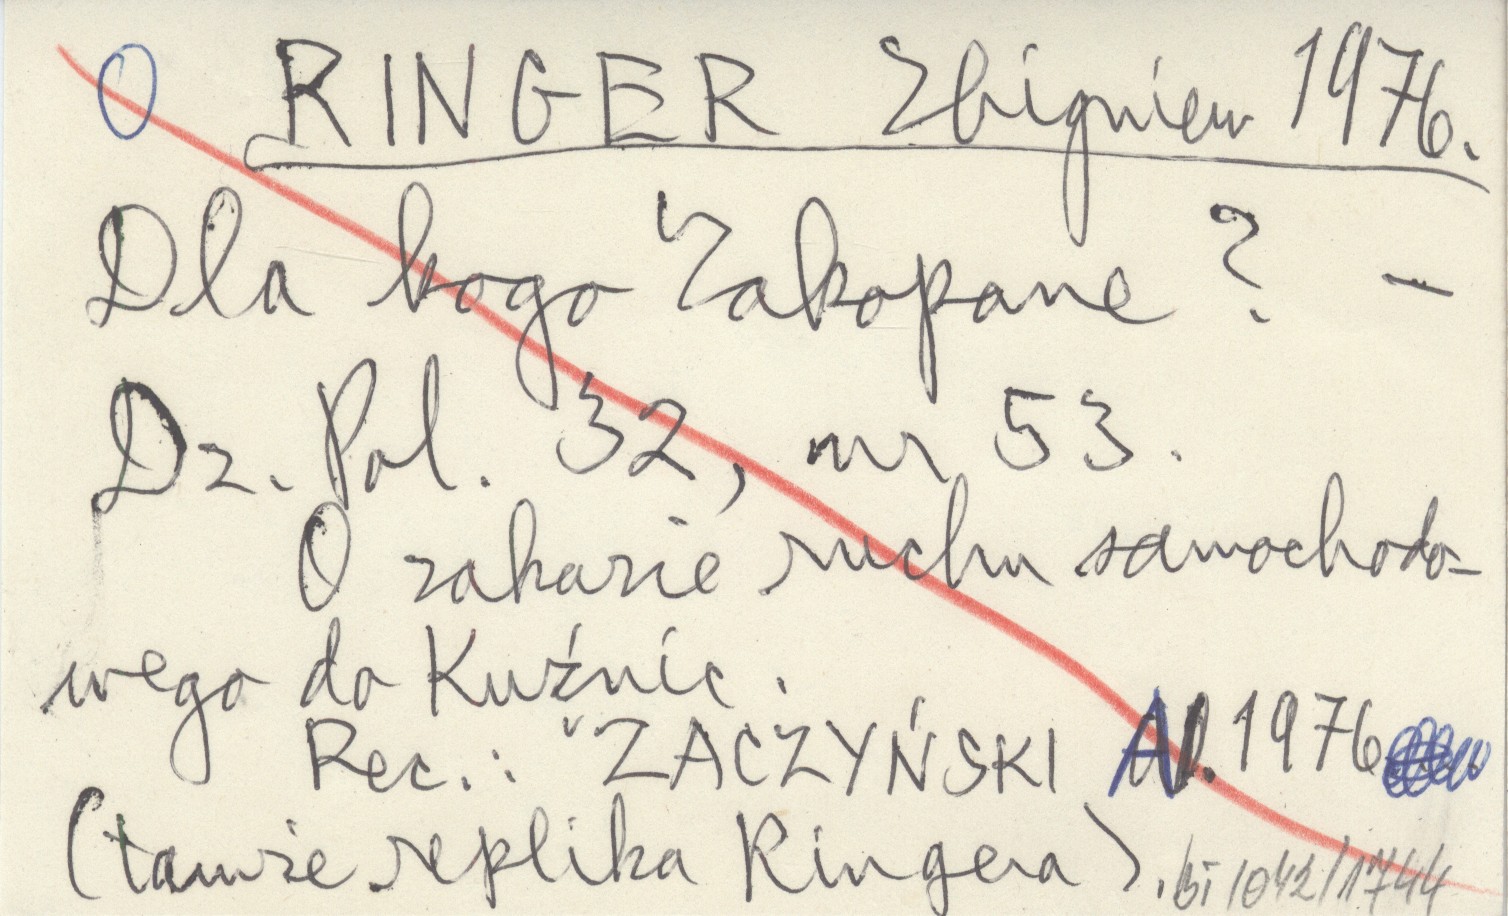 O RINGER Zbigniew 1976.
Dla kogo Zakopane? –
Dz. Pol. 32, nr 53.
O zakazie ruchu samochodo-
wego do Kuźnic.
Rec.: ZACZYŃSKI A. 1976
(tamże replika Ringera).
bi 1042/1744